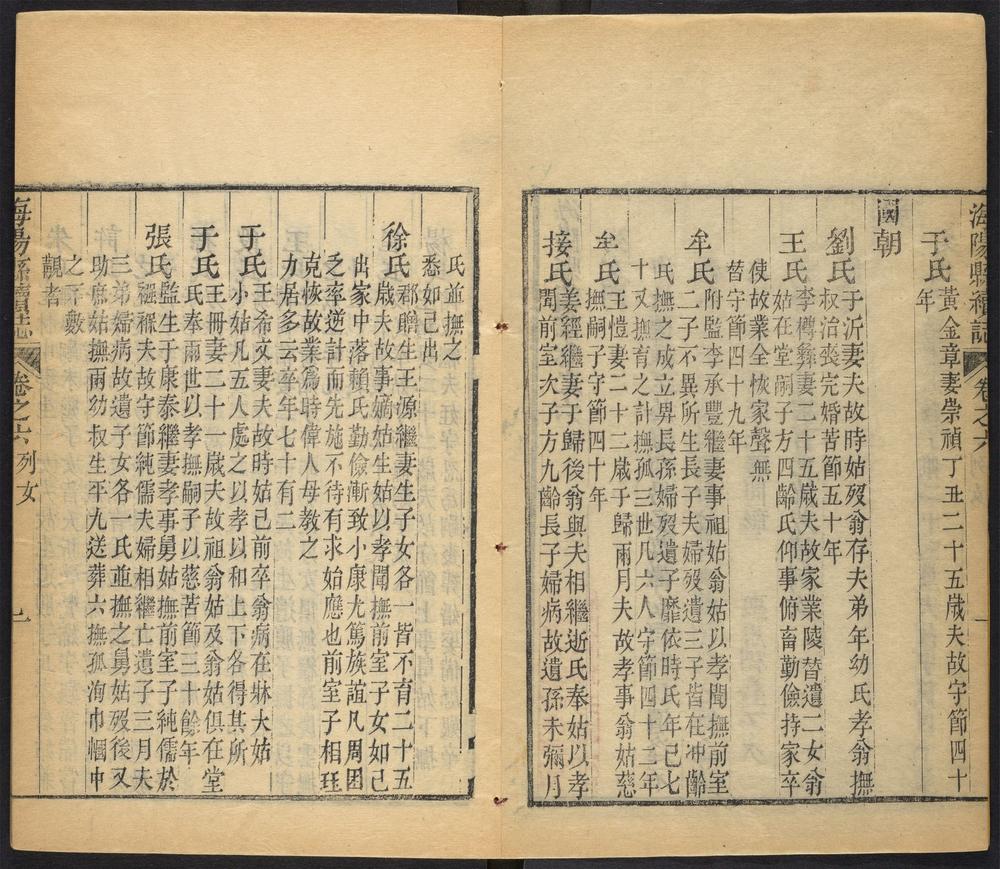 海陽縣續志
卷之六
一
于氏黃金章妻崇禎丁丑二十五歲夫故守節四十
年
國朝
劉氏于沂妻夫故時姑歿翁存夫弟年幼氏孝翁撫
叔治喪完婚苦節五十年
王氏李樽彝妻二十五歲夫故家業陵替遺二女翁
姑在堂嗣子方四齡氏仰事俯畜勤儉持家卒
使故業全恢家聲無
替守節四十九年
牟氏附監李承豐繼妻事祖姑翁姑以孝聞撫前室
二子不異所生長子夫婦歿遺三子皆在冲齡
氏撫之成立昇長孫婦歿遺子靡依時氏年已七
十又撫育之計撫孤三世凡六人守節四十二年
牟氏王愷妻二十二歲于歸兩月夫故孝事翁姑慈
撫嗣子守節四十年
接氏姜經繼妻于歸後翁與夫相繼逝氏奉姑以孝
聞前室次子方九齡長子婦病故遺孫未彌月
氏並撫之
悉如己出
徐氏郡贈生王源繼妻生子女各一皆不育二十五
歲夫故事嫡姑生姑以孝聞撫前室子女如己
出家中落賴氏勤儉漸致小康尤篤族誼凡周困
乏率逆計而先施不待有求始應也前室子相珏
克恢故業爲時偉人母教之
力居多云卒年七十有二
于氏王希文妻夫故時姑已前卒翁病在牀大姑
小姑凡五人處之以孝以和上下各得其所
于氏王冊妻二十一歲夫故祖翁姑及翁姑俱在堂
氏奉兩世以孝撫嗣子以慈苦節三十餘年
張氏監生于康泰繼妻孝事舅姑撫前室子純儒於
襁褓夫故守節純儒夫婦相繼亡遺子三月夫
三弟婦病故遺子女各一氏並撫之舅姑歿後又
助庶姑撫兩幼叔生平九送葬六撫孤洵巾幗中
之不數
覯者
海陽縣續志
卷之六 列女